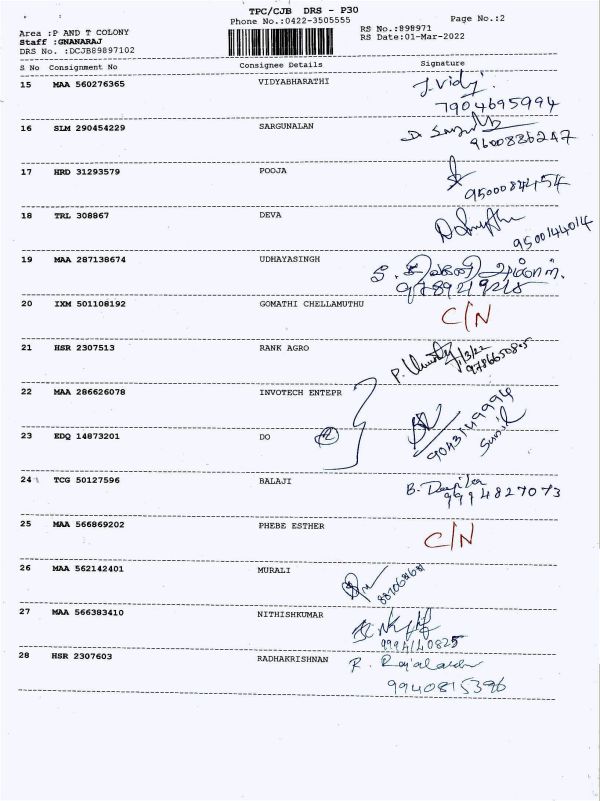 TPC/CJB DRS - P30
Phone No.:0422-3505555
Page No.:2
Area :P AND T COLONY
Staff :GNANARAJ
DRS No. :DCJB89897102
RS No.:898971
RS Date:01-Mar-2022
S No Consignment No Consignee Details Signature
15 MAA 560276365 VIDYABHARATHI J.Vidj
7904695994
16 SLM 290454229 SARGUNALAN
9600886247
17 HRD 31293579 POOJA
9500084454
18 TRL 308867 DEVA
9500144014
19 MAA 287138674 UDHAYASINGH
9789219218
20 IXM 501108192 GOMATHI CHELLAMUTHU C/N
21 HSR 2307513 RANK AGRO
22 MAA 286626078 INVOTECH ENTEPR
9043149994
23 EDQ 14873201 DO 2
Sunil
24 TCG 50127596 BALAJI
9994827073
25 MAA 566869202 PHEBE ESTHER C/N
26 MAA 562142401 MURALI
27 MAA 566383410 NITHISHKUMAR
9994140825
28 HSR 2307603 RADHAKRISHNAN
9940815396